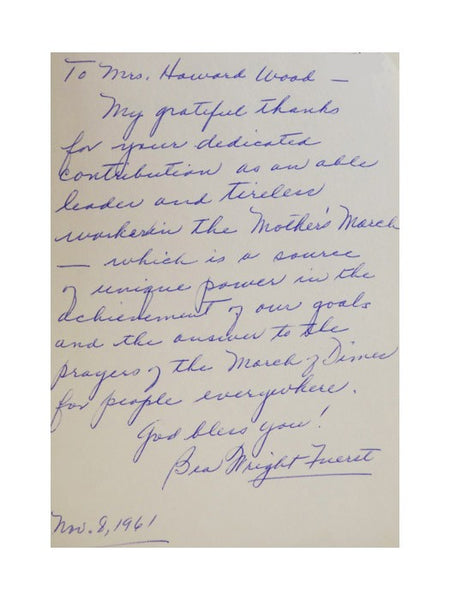 To Mrs. Howard Wood —
My grateful thanks
for your dedicated
contribution as an able
leader and tireless
worker in the Mother's March
— which is a source
of unique power in the
achievement of our goals
and the answer to the
prayers of the March of Dimes
for people everywhere.
God bless you!
Bea Wright Fuerst
Nov. 8, 1961